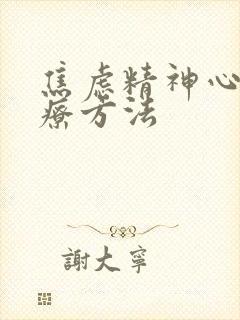 焦虑精神心
疗方法
謝大寧